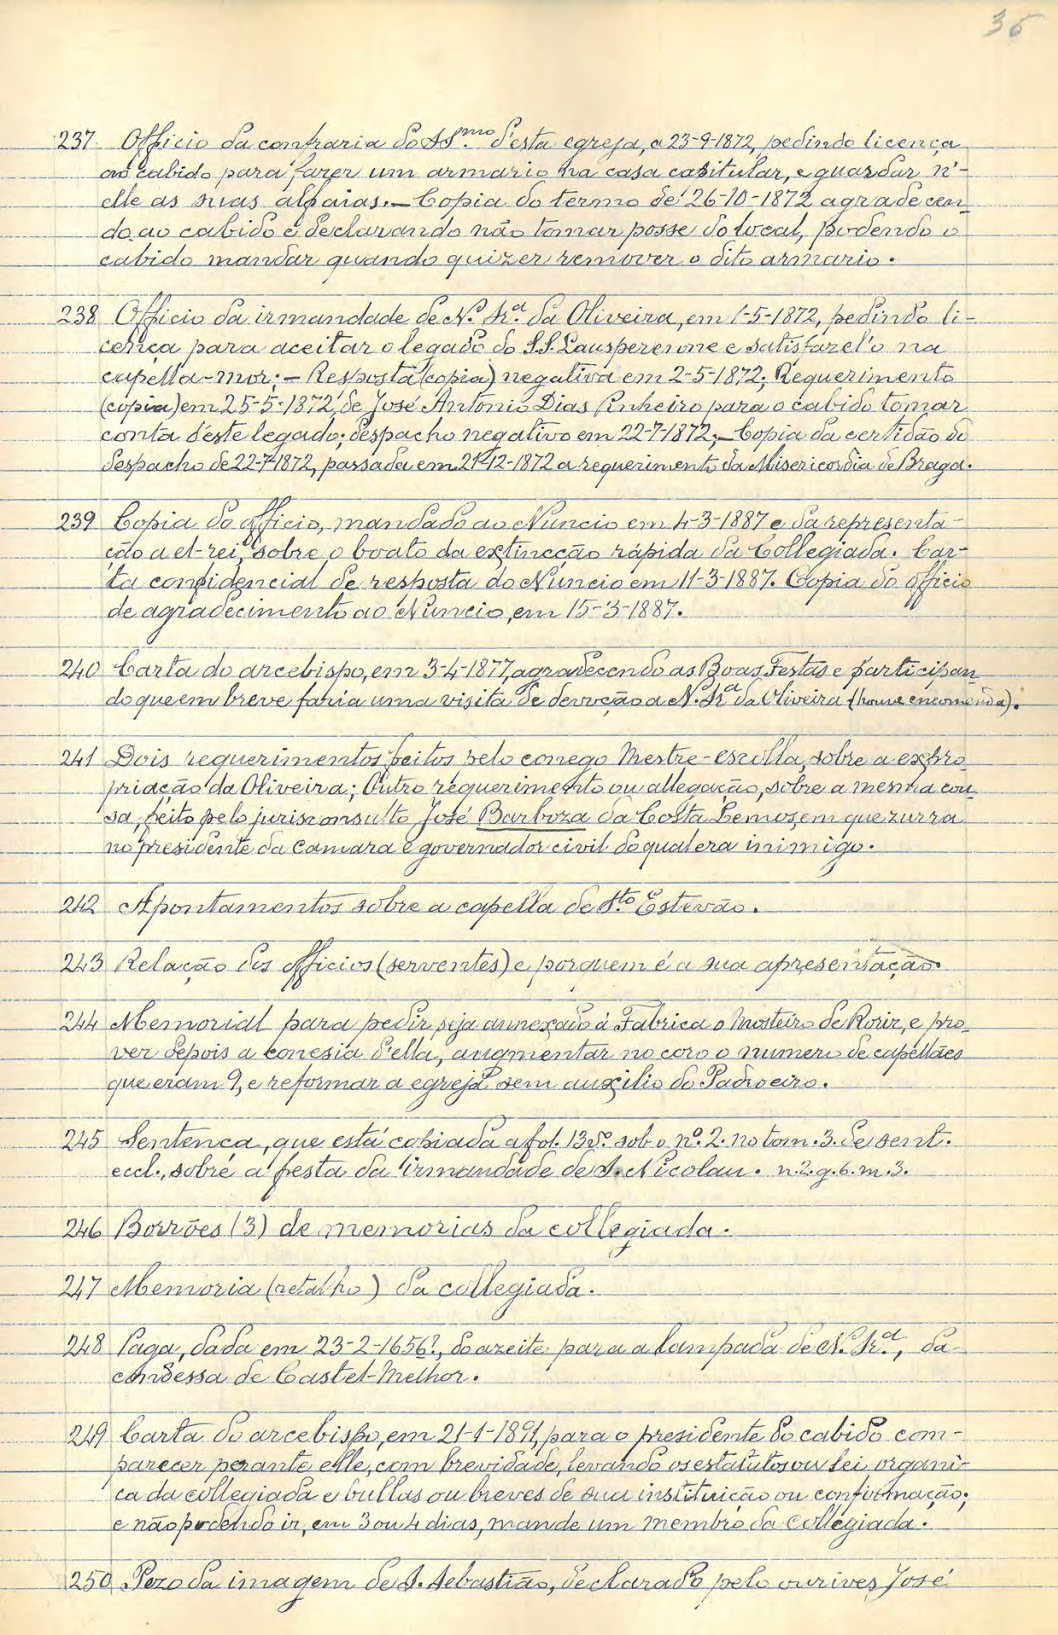 36
237 Officio da confraria do SSmo d'esta egreja, a 23-9-1872, pedindo licença
ao cabido para fazer um armario na casa capitular, e guardar n'-
elle as suas alfaias. — Copia do termo de 26-10-1872 agradecen-
do ao cabido e declarando não tomar posse do local, podendo o
cabido mandar quando quizer remover o dito armario.
238 Officio da irmandade de N.ª Sr.ª da Oliveira, em 1-5-1872, pedindo li-
cença para aceitar o legado do S.S. Lausperenne e satisfazel'o na
capella-mor; — Resposta (copia) negativa em 2-5-1872; Requerimento
(copia) em 25-5-1872, de José Antonio Dias Pinheiro para o cabido tomar
conta d'este legado; despacho negativo em 22-7-1872; — Copia da certidão do
despacho de 22-7-1872, passada em 21-12-1872 a requerimento da Misericordia de Braga.
239 Copia do officio, mandado ao Nuncio em 4-3-1887 e da representa-
ção a el-rei, sobre o boato da extincção rápida da Collegiada. Car-
ta confidencial de resposta do Nuncio em 11-3-1887. Copia do officio
de agradecimento ao Nuncio, em 15-3-1887.
240 Carta do arcebispo, em 3-4-1877, agradecendo as Boas Festas e participan-
do que em breve faria uma visita de devoção a N. Sr.ª da Oliveira (houve encomenda).
241 Dois requerimentos feitos pelo conego Mestre-escolla, sobre a expro-
priação da Oliveira; Outro requerimento ou allegação, sobre a mesma cou-
sa, feito pelo jurisconsulto José Barboza da Costa Lemos, em que zurra
no presidente da camara e governador civil do qual era inimigo.
242 Apontamentos sobre a capella de S.to Estevão.
243 Relação dos officios (serventes) e por quem é a sua apresentação.
244 Memorial para pedir, seja annexado á Fabrica o Mosteiro de Roriz, e pro-
ver depois a conesia d'ella, augmentar no coro o numero de capellães
que eram 9, e reformar a egreja sem auxilio do Padroeiro.
245 Sentença, que está copiada a fol. 13vº. sob o nº. 2. no tom. 3. de sent.
eccl., sobre a festa da irmandade de S. Nicolau. n.2.g.6.m.3.
246 Borrões (3) de memorias da collegiada.
247 Memoria (retalho) da collegiada.
248 Paga, dada em 23-2-1656?, do azeite para a lampada de N. Sr.ª, da
condessa de Castel-Melhor.
249 Carta do arcebispo, em 21-1-1891, para o presidente do cabido com-
parecer perante elle, com brevidade, levando os estatutos ou lei organi-
ca da collegiada e bullas ou breves de sua instituição ou confirmação;
e não podendo ir, em 3 ou 4 dias, mande um membro da collegiada.
250 Pezo da imagem de S. Sebastião, declarado pelo ourives José